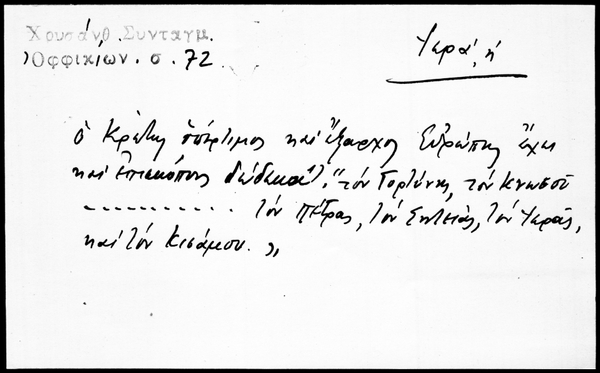 Χρυσάνθ. Συνταγμ.
Ὀφφικίων. σ. 72
Ψαρά, ἡ
ὁ Κρήτης ὑπέρτιμος καὶ ἔξαρχος Εὐρώπης ἔχει
καὶ ἐπισκόπους δώδεκα, "τὸν Γορτύνης, τὸν Κνωσοῦ
- - - - - - - - - - - τὸν Πέτρας, τὸν Σητείας, τὸν Ψαρᾶς,
καὶ τὸν Κισάμου. »